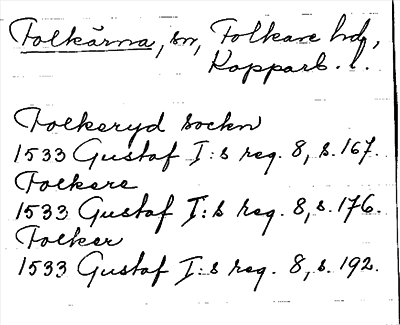 Folkärna, sn, Folkare hd,
Kopparb. l.
Folkeryd sockn
1533 Gustaf I:s reg. 8, s. 167.
Folkere
1533 Gustaf I:s reg. 8, s. 176.
Folker
1533 Gustaf I:s reg. 8, s. 192.